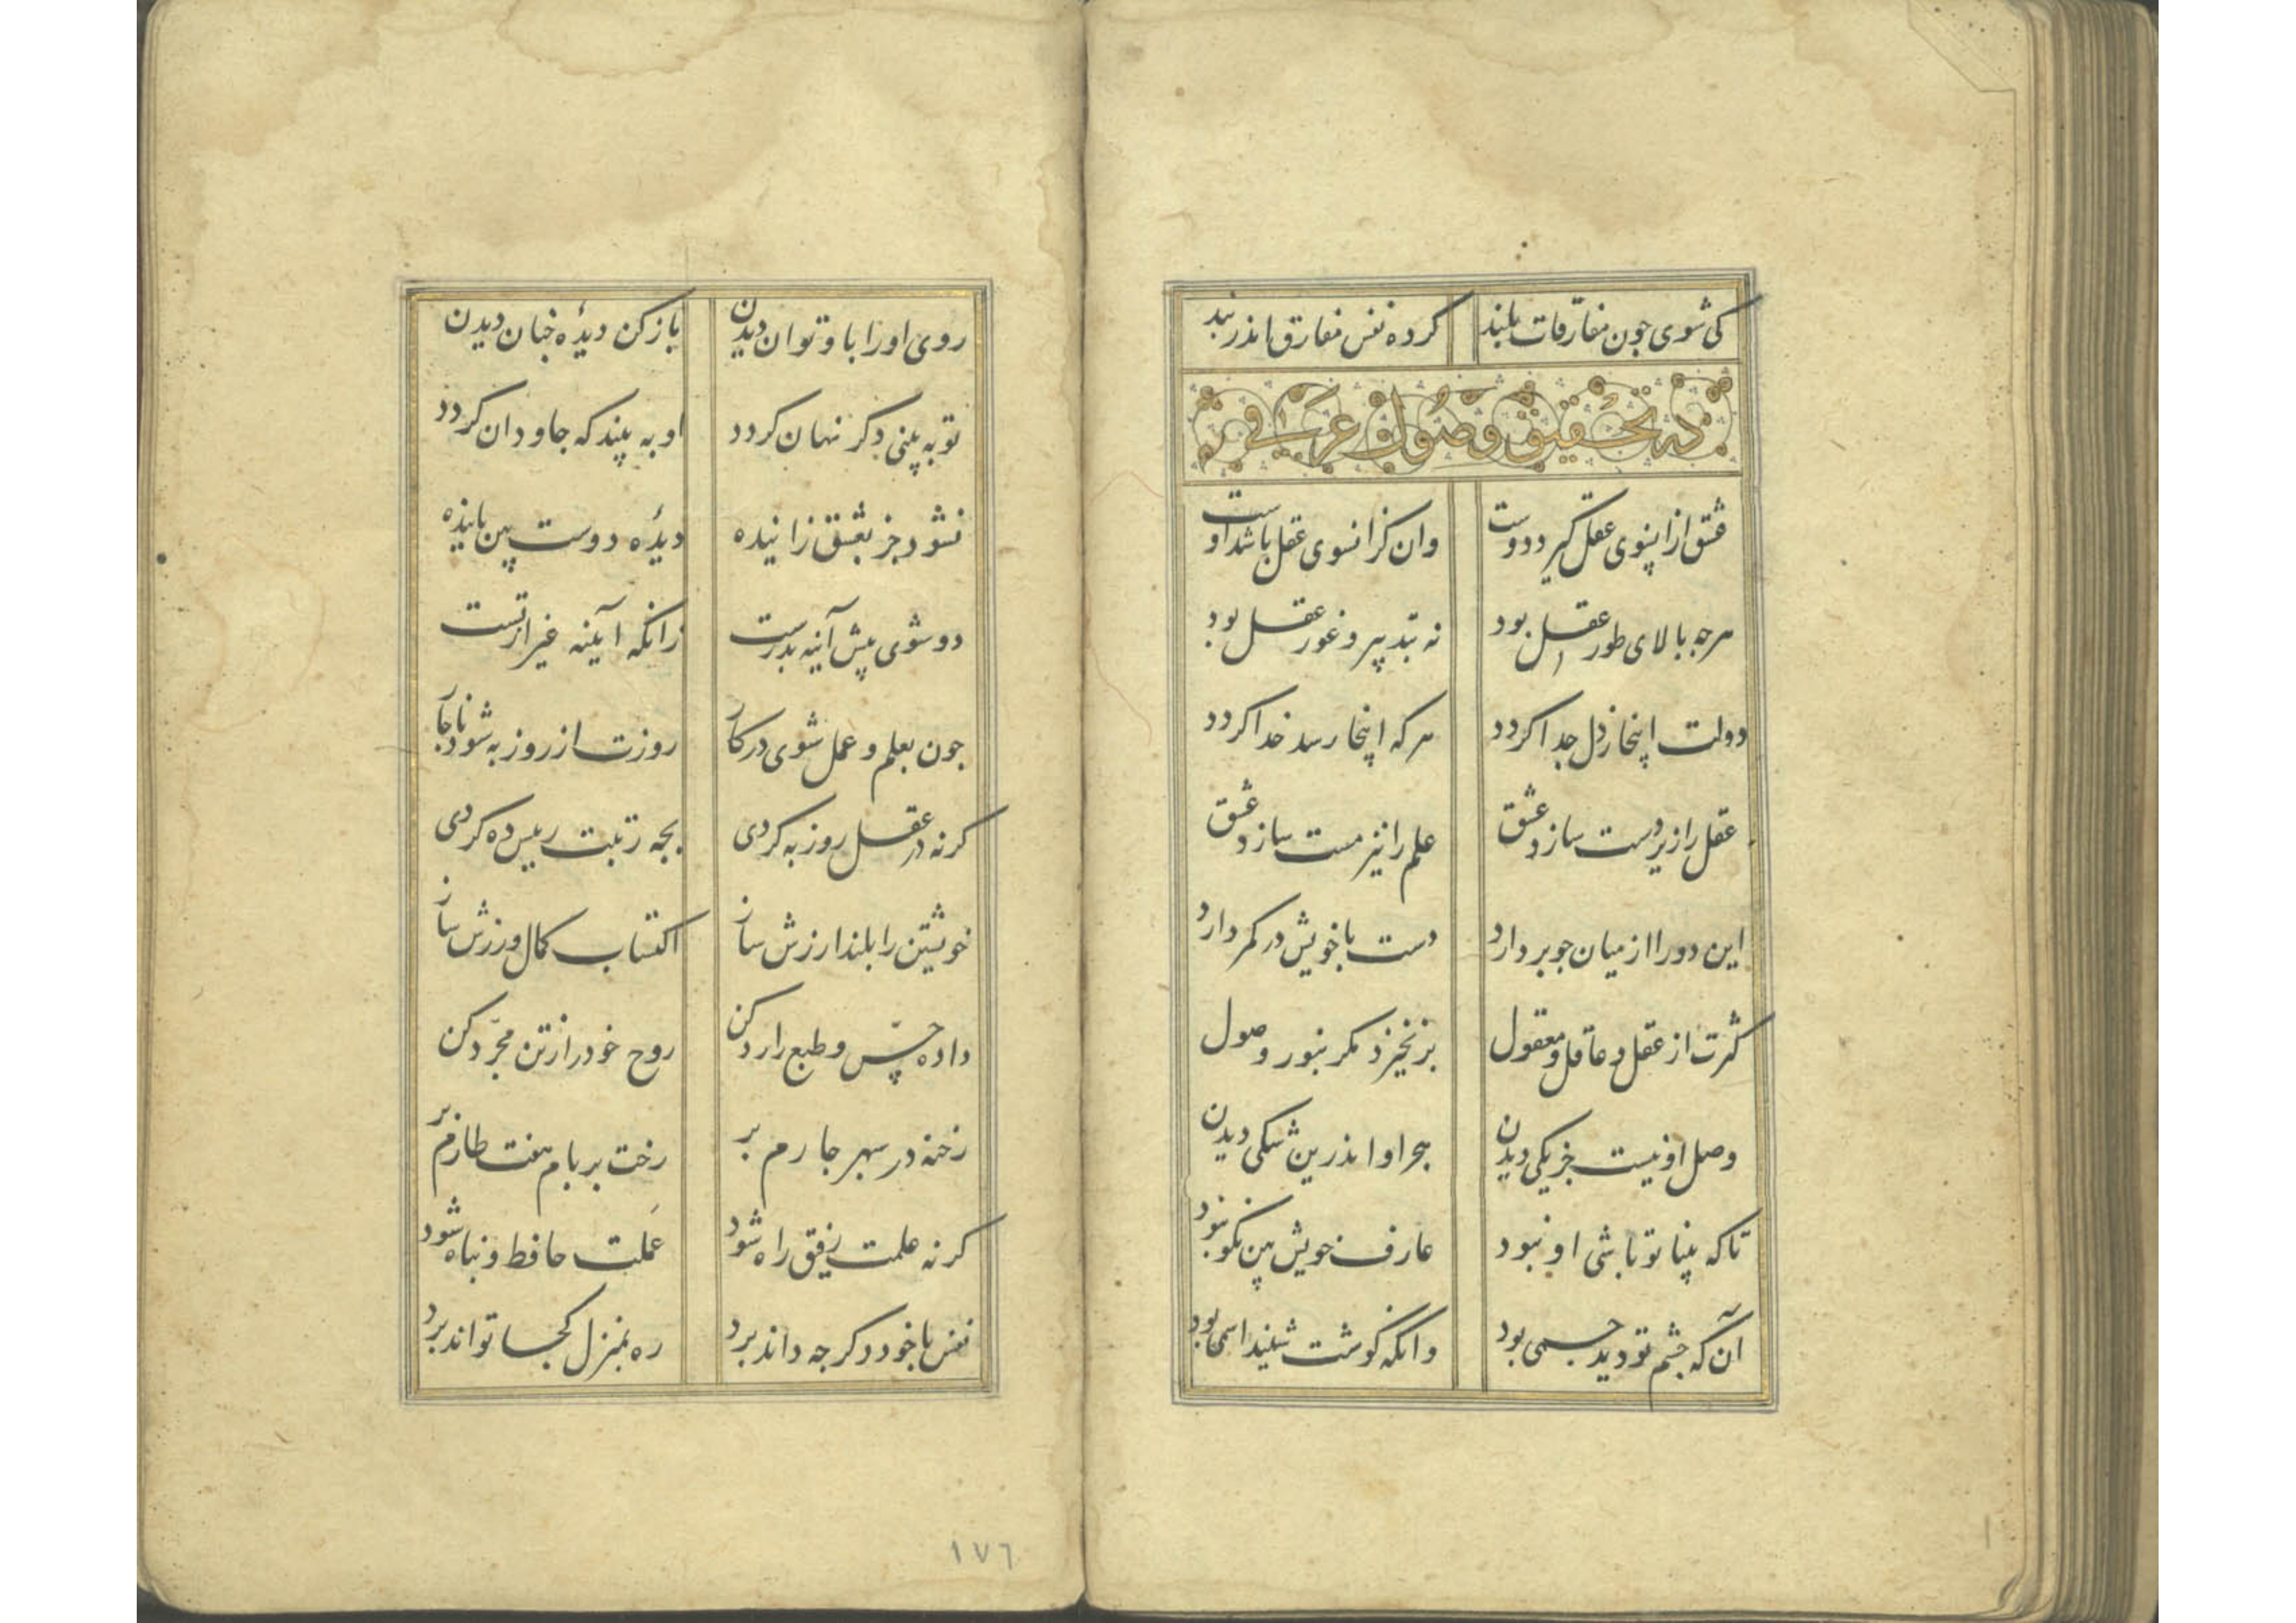 کی شوی چون مفارقات بلند کرده نفس مفارق اندر بند
در تحقیق وصول و عرفان
عشق ازاینسوی عقل گیرد دوست وان کزانسوی عقل باشد اوست
هرچه بالای طور عقل بود نه بتدبیر و غور عقل بود
دولت اینجا زدل جدا کردد هرکه اینجا رسد خدا کردد
عقل را زیردست سازد عشق علم را نیز مست سازد عشق
این دورا از میان جو بردارد دست با خویش در کمر دارد
کثرت از عقل و عاقل و معقول برنخیزد مکر بنور وصول
وصل او نیست جز یکی دیدن هجر او اندرین شکی دیدن
تا که بینا تو باشی او نبود عارف خویش بین نکو نبود
آن که چشم تو دید جسمی بود وانکه کوشت شنید اسمی بود
روی اورا باو توان دیدن باز کن دیدهٔ چنان دیدن
تو به بینی دکر نهان کردد او به بیند که جاودان کردد
نشود جز بعشق زاینده دیدهٔ دوست بین پاینده
دو شوی پیش آینه بدرست زانکه آیینه غیر از تست
چون بعلم و عمل شوی در کار روزت از روز به شود ناچار
کرنه در عقل روز به کردی بچه رتبت رییس ده کردی
خویشتن را بلند ارزش ساز اکتساب کمال ورزش ساز
داده حس و طبع را رد کن روح خود را ز تن مجرد کن
رخنه در سپهر چارم بر رخت بر بام هفت طارم بر
کرنه علمت رفیق راه شود عملت حافظ و پناه شود
نفس با خود دکر چه داند برد ره بمنزل کجا تواند برد
١٧٦